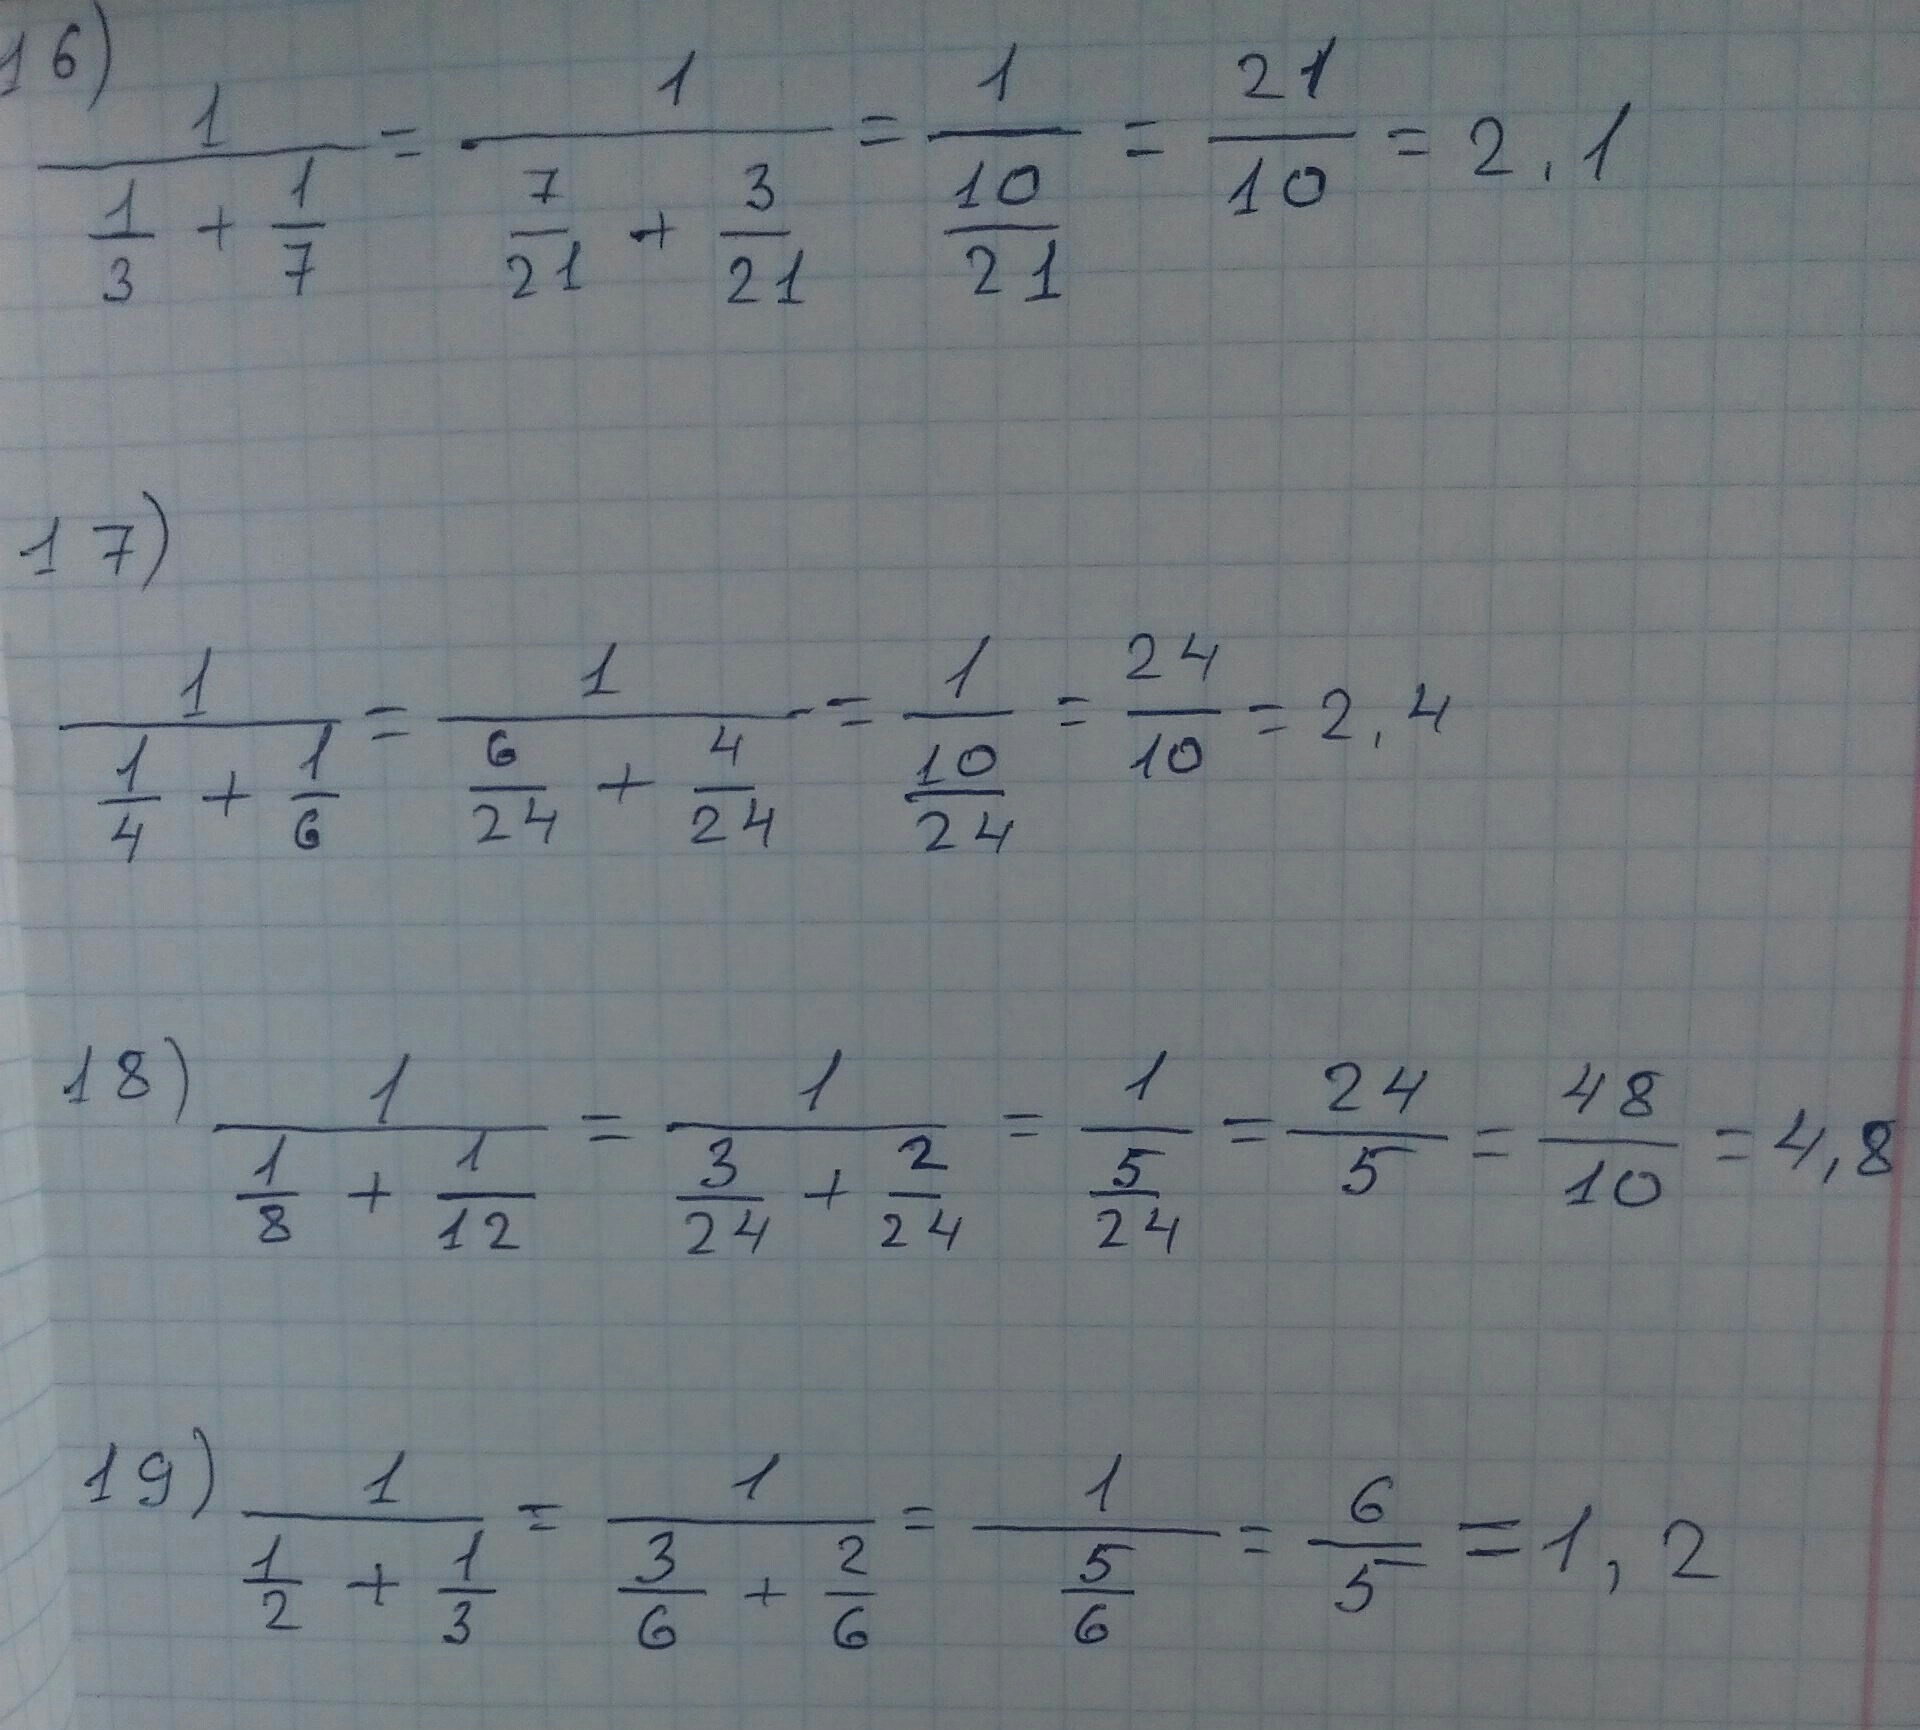 16)
1/(1/3 + 1/7) = 1/(7/21 + 3/21) = 1/(10/21) = 21/10 = 2,1
17)
1/(1/4 + 1/6) = 1/(6/24 + 4/24) = 1/(10/24) = 24/10 = 2,4
18) 1/(1/8 + 1/12) = 1/(3/24 + 2/24) = 1/(5/24) = 24/5 = 48/10 = 4,8
19) 1/(1/2 + 1/3) = 1/(3/6 + 2/6) = 1/(5/6) = 6/5 = 1,2